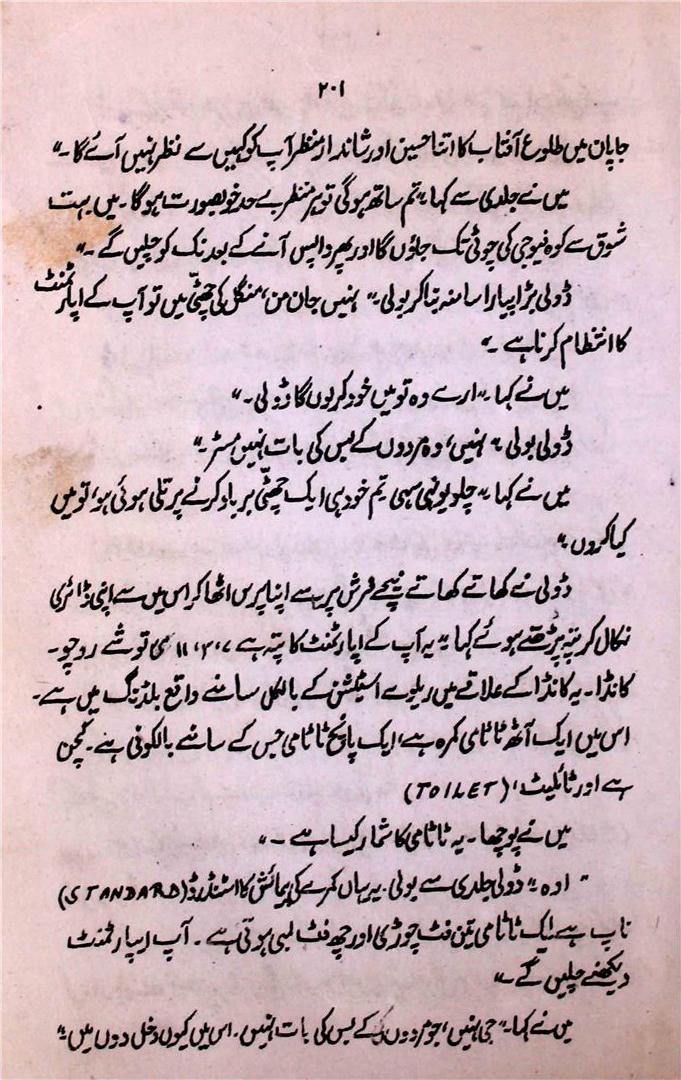 ۲۰۱
جاپان میں طلوع آفتاب کا اتنا حسین اور شاندار منظر آپ کو کہیں سے نظر نہیں آئے گا۔"
میں نے جلدی سے کہا "تم ساتھ ہوگی تو ہر منظر بے حد خوبصورت ہوگا۔ میں بہت
شوق سے کوہ فیوجی کی چوٹی تک جاؤں گا اور پھر واپس آنے کے بعد نک کو چلیں گے۔"
ڈولی بڑا پیارا سا منہ بنا کر بولی۔ "نہیں جان من، منگل کی چھٹی میں تو آپ کے اپارٹمنٹ
کا انتظام کرنا ہے۔"
میں نے کہا۔ "ارے وہ تو میں خود کر لوں گا ڈولی۔"
ڈولی بولی "نہیں، وہ مردوں کے بس کی بات نہیں مسٹر۔"
میں نے کہا "چلو یونہی سہی تم خود ہی ایک چھٹی برباد کرنے پر تلی ہوئی ہو، تو میں
کیا کروں۔"
ڈولی نے کھاتے کھاتے نیچے فرش پر سے اپنا پرس اٹھا کر اس میں سے اپنی ڈائری
نکال کر پتہ پڑھتے ہوئے کہا "یہ آپ کے اپارٹمنٹ کا پتہ ہے ۷، ۳، ۱۱ می توشے روچو۔
کانڈا۔ یہ کانڈا کے علاقے میں ریلوے اسٹیشن کے بالکل سامنے واقع بلڈنگ میں ہے۔
اس میں ایک آٹھ ٹاٹامی کمرہ ہے، ایک پانچ ٹاٹامی جس کے سامنے بالکونی ہے۔ کچن
ہے اور ٹائلیٹ، (TOILET)
میں نے پوچھا۔ یہ ٹاٹامی کا شمار کیسا ہے۔"
"اوہ" ڈولی جلدی سے بولی۔ یہ یہاں کمرے کی پیمائش کا اسٹنڈرڈ (STANDARD)
ناپ ہے ایک ٹاٹامی تین فٹ چوڑی اور چھ فٹ لمبی ہوتی ہے۔ آپ اپارٹمنٹ
دیکھنے چلیں گے۔"
میں نے کہا۔ "جی نہیں، جو مردوں کے بس کی بات نہیں۔ اس میں کیوں دخل دوں میں"